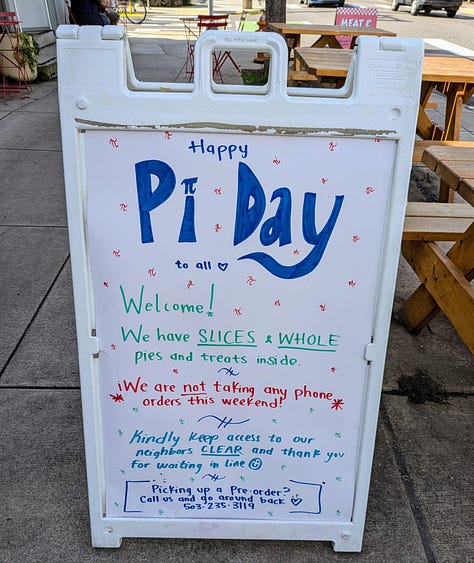 FILL WITH SAND
MEAT &
Happy
Pi Day
to all ♡
Welcome!
We have SLICES & WHOLE
pies and treats inside.
¡We are not taking any phone
orders this weekend!
Kindly keep access to our
neighbors CLEAR and thank you
for waiting in line ☺
Picking up a Pre-order?
Call us and go around back ♡
503-235-3119